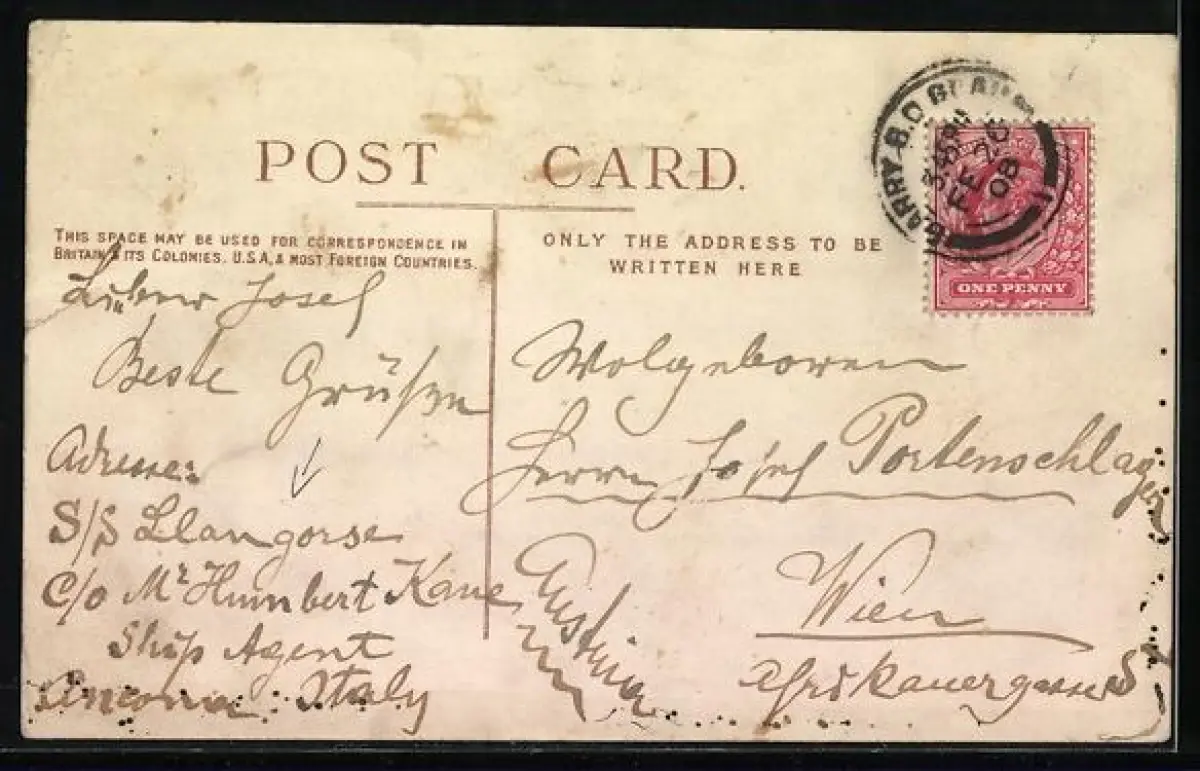 POST CARD.
THIS SPACE MAY BE USED FOR CORRESPONDENCE IN
BRITAIN & ITS COLONIES, U.S.A. & MOST FOREIGN COUNTRIES.
ONLY THE ADDRESS TO BE
WRITTEN HERE
BARRY B.O
FE 26
08
ONE PENNY
Josef
Beste Grüße
Adresse
S/S Llangorse
C/o Mr Humbert Kane
Ship Agent
Ancona Italy
Wolgeboren
Herrn Josef Portenschlager
Wien
Afrikanergasse
Austria